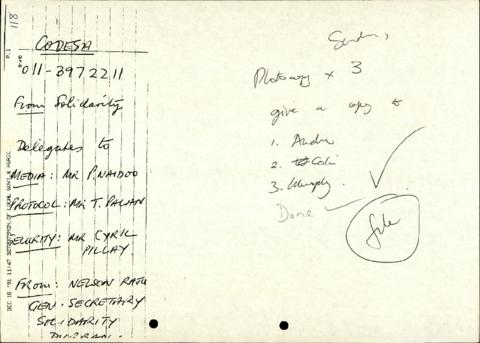 118
P.1
CODESA
011-3972211
From Solidarity
Delegates to
MEDIA: MR P. NAIDOO
PROTOCOL: MR T. PALAN
SECURITY: MR CYRIL
PILLAY.
FROM: NELSON
GEN. SECRETARY
SOLIDARITY
DEC 16 '91 11:47
Photocopy x 3
give a copy to
1. Andre
2. Colin
3. Murphy.
Done
File